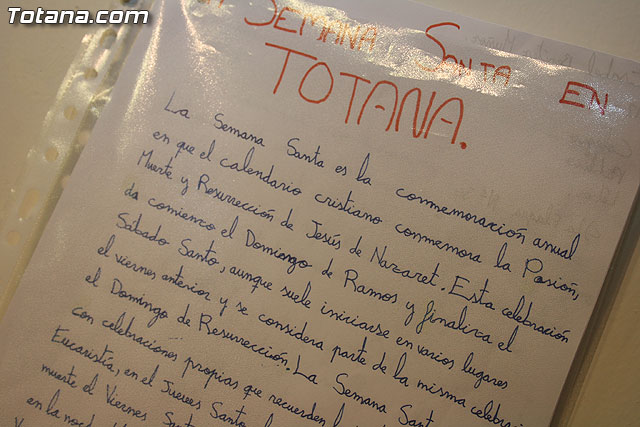 Totana.com
SEMANA SANTA EN
TOTANA.
La Semana Santa es la conmemoración anual
en que el calendario cristiano conmemora la Pasión,
Muerte y Resurrección de Jesús de Nazaret. Esta celebración
da comienzo el Domingo de Ramos y finaliza el
Sábado Santo, aunque suele iniciarse en varios lugares
el viernes anterior y se considera parte de la misma celebraci
el Domingo de Resurrección. La Semana Sant
con celebraciones propias que recuerden
Eucaristía, en el Jueves Santo,
muerte el Viernes Sant
en la noc